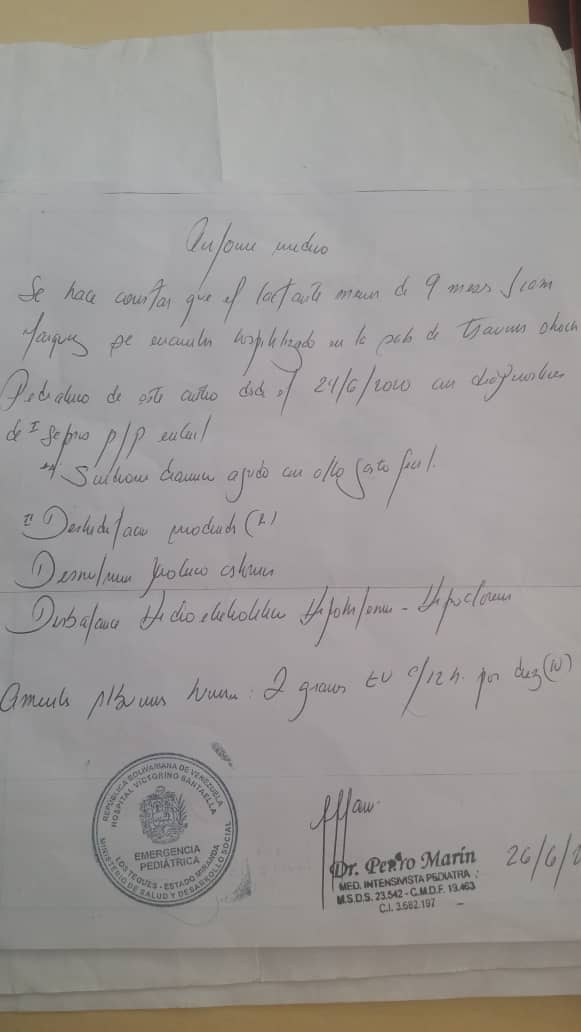 Informe medico
Se hace constar que el lactante menor de 9 meses
Marquez se encuentra hospitalizado en la sala de Trauma shock
Pediatrico de este centro desde el 24/6/2010 con diagnosticos
de I Sepsis p/p enteral
Sindrome diarreico agudo con alto gasto fecal.
II Deshidratacion moderada (2)
Desnutricion proteico calorica
Desbalance Hidroelectrolitico Hipokalemia - Hipocloremia
Amerita Albumina humana: 2 gramos EV c/12 h. por diez (10)
REPÚBLICA BOLIVARIANA DE VENEZUELA
HOSPITAL VICTORINO SANTAELLA
EMERGENCIA
PEDIÁTRICA
LOS TEQUES - ESTADO MIRANDA
MINISTERIO DE SALUD Y DESARROLLO SOCIAL
Dr. Pedro Marín
MED. INTENSIVISTA PEDIATRA
M.S.D.S. 23.542 - C.M.D.F. 13.463
C.I. 3.682.197
26/6/2